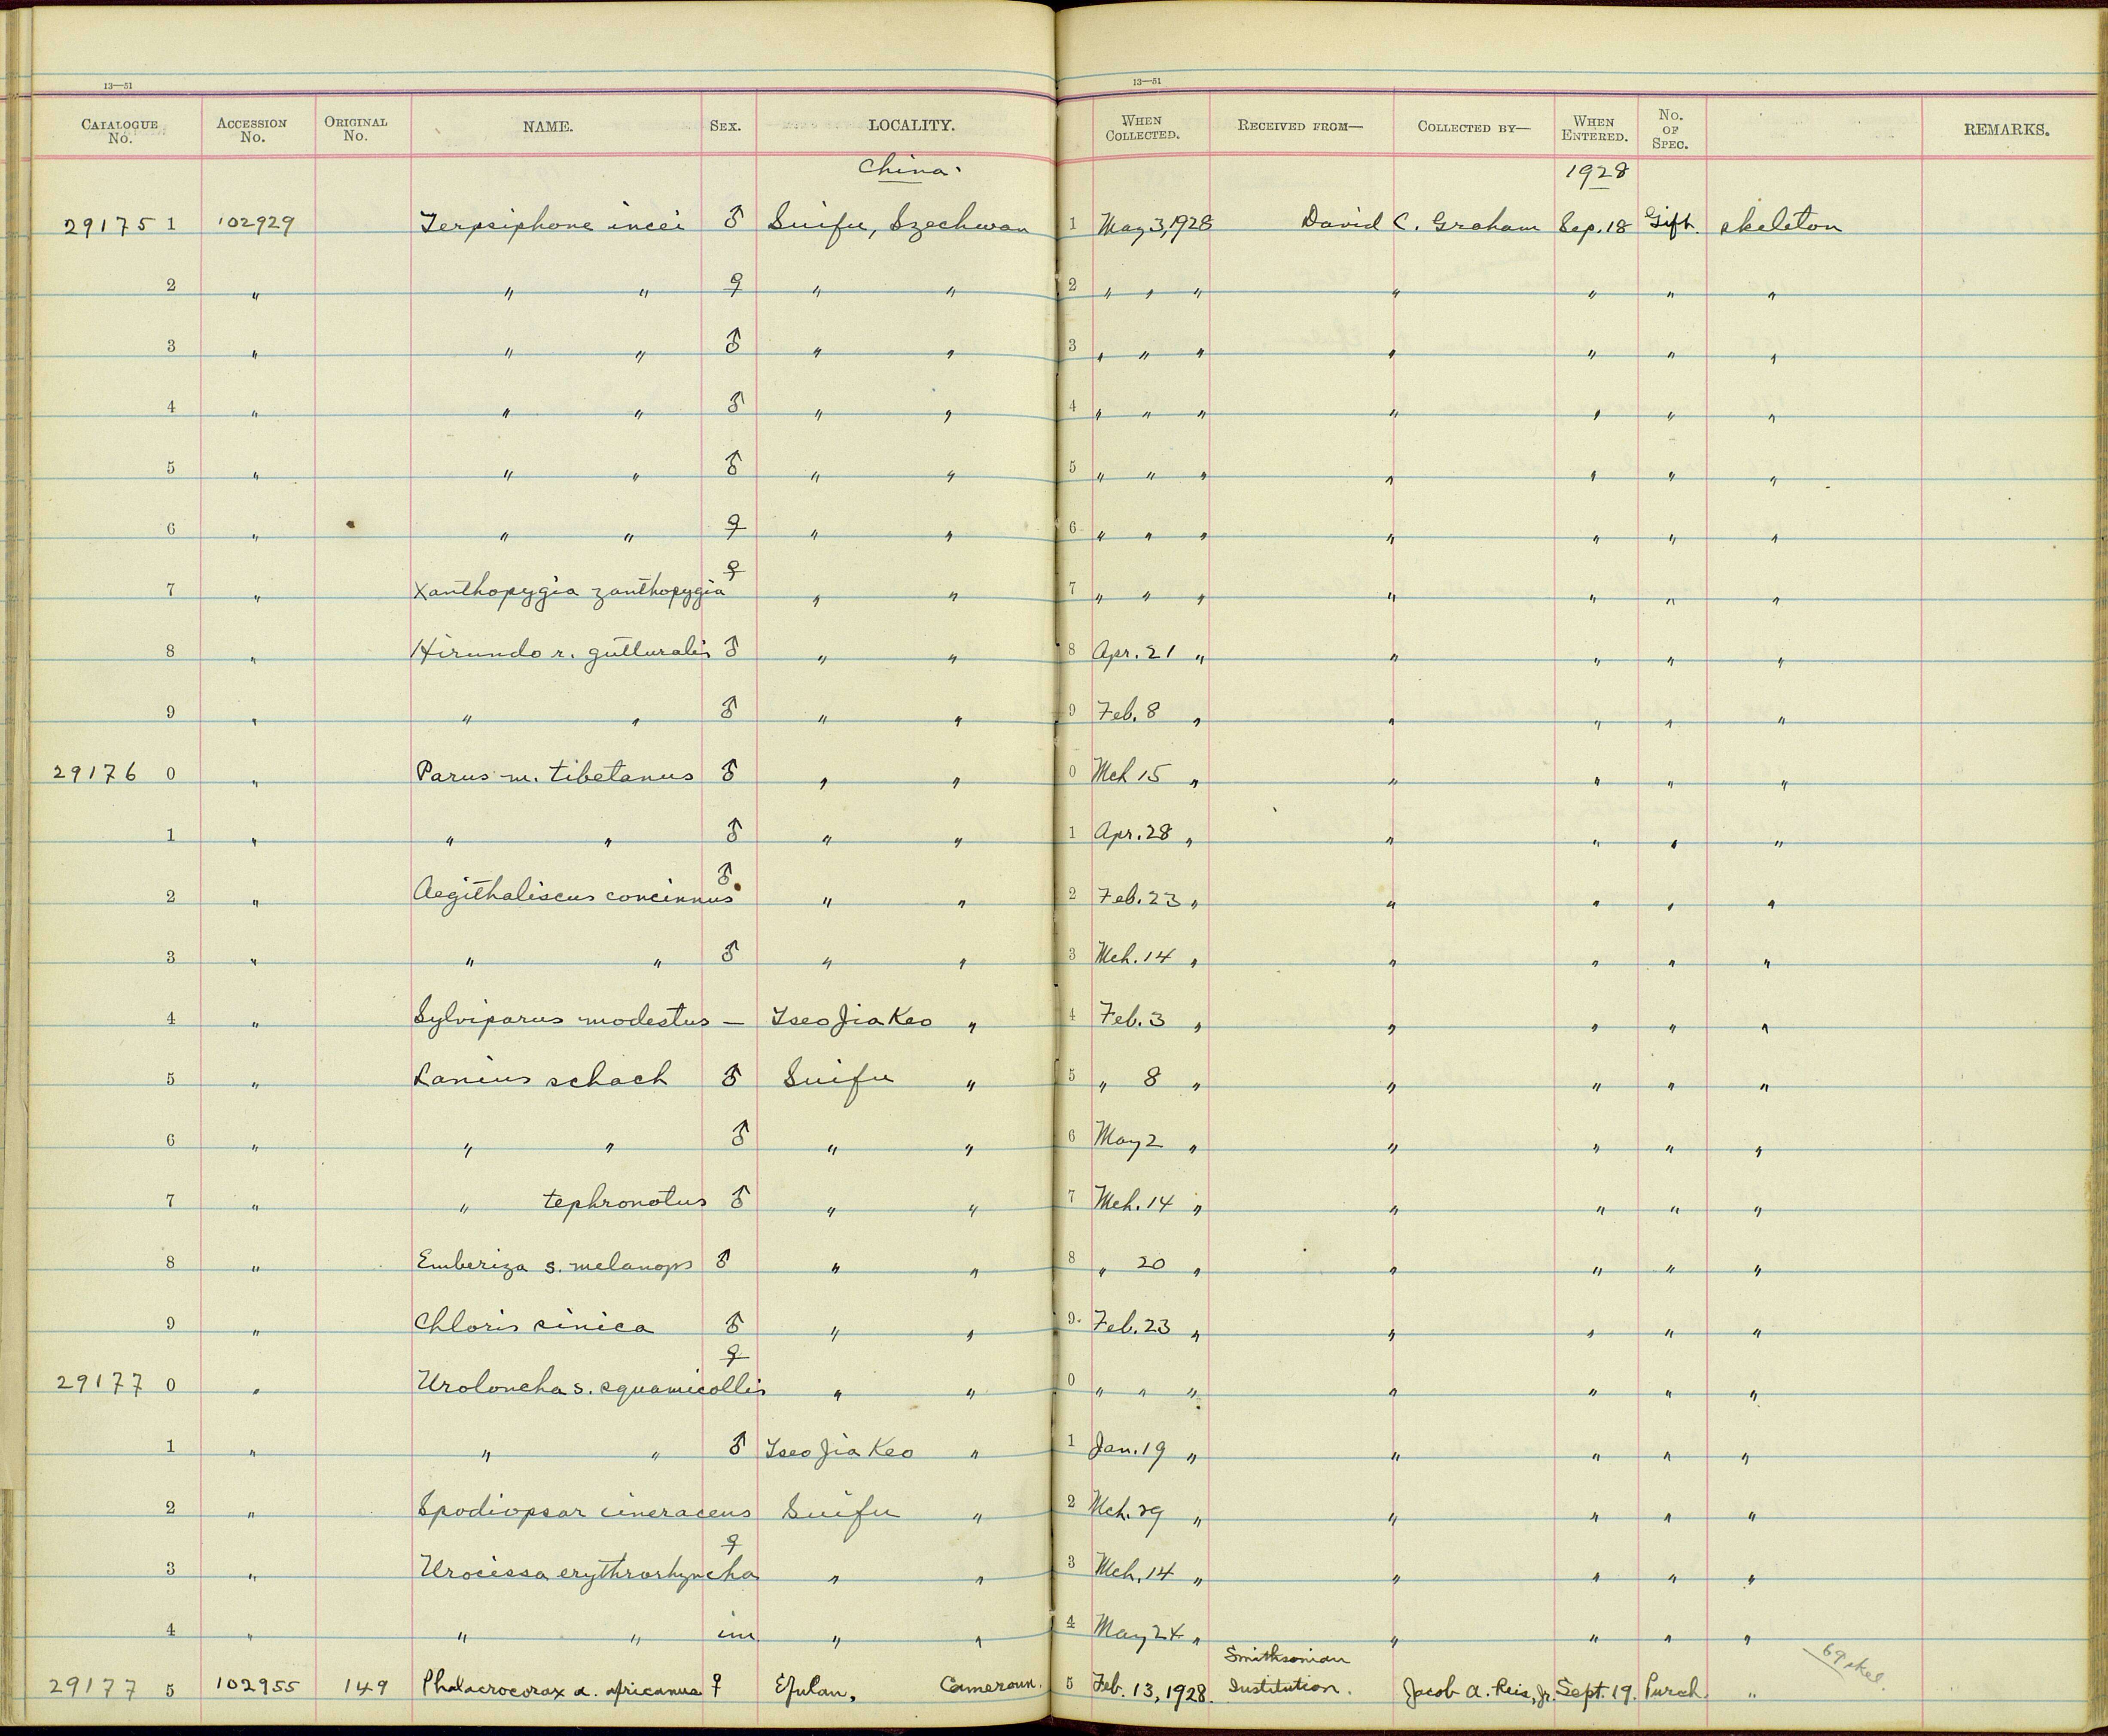 13—51 13—51
CATALOGUE No. ACCESSION No. ORIGINAL No. NAME. SEX. LOCALITY. WHEN COLLECTED. RECEIVED FROM— COLLECTED BY— WHEN ENTERED. No. OF SPEC. REMARKS.
China. 1928
29175 1 102929 Terpsiphone incei ♂ Suifu, Szechwan 1 May 3, 1928 David C. Graham Sep. 18 Gift. skeleton
2 " " " ♀ " " 2 " " " " " " "
3 " " " ♂ " " 3 " " " " " " "
4 " " " ♂ " " 4 " " " " " " "
5 " " " ♂ " " 5 " " " " " " "
6 " " " ♀ " " 6 " " " " " " "
7 " Xanthopygia zanthopygia ♀ " " 7 " " " " " " "
8 " Hirundo r. gutturalis ♂ " " 8 Apr. 21 " " " " "
9 " " " ♂ " " 9 Feb. 8 " " " " "
29176 0 " Parus m. tibetanus ♂ " " 0 Mch 15 " " " " "
1 " " " ♂ " " 1 Apr. 28 " " " " "
2 " Aegithaliscus concinnus ♂ " " 2 Feb. 23 " " " " "
3 " " " ♂ " " 3 Mch. 14 " " " " "
4 " Sylviparus modestus — Tseo Jia Keo " 4 Feb. 3 " " " " "
5 " Lanius schach ♂ Suifu " 5 " 8 " " " " "
6 " " " ♂ " " 6 May 2 " " " " "
7 " " tephronotus ♂ " " 7 Mch. 14 " " " " "
8 " Emberiza s. melanops ♂ " " 8 " 20 " " " " "
9 " Chloris sinica ♂ " " 9. Feb. 23 " " " " "
29177 0 " Uroloncha s. squamicollis ♀ " " 0 " " " " " " "
1 " " " ♂ Tseo Jia Keo " 1 Jan. 19 " " " " "
2 " Spodiopsar cineraceus Suifu " 2 Mch. 29 " " " " "
3 " Urocissa erythrorhyncha ♀ " " 3 Mch. 14 " " " " "
4 " " " im " " 4 May 24 " " " " "
69 skel.
29177 5 102955 149 Phalacrocorax a. africanus ♀ Efulan, Cameroun. 5 Feb. 13, 1928. Smithsonian Institution. Jacob A. Reis, Jr. Sept. 19. Purch. "